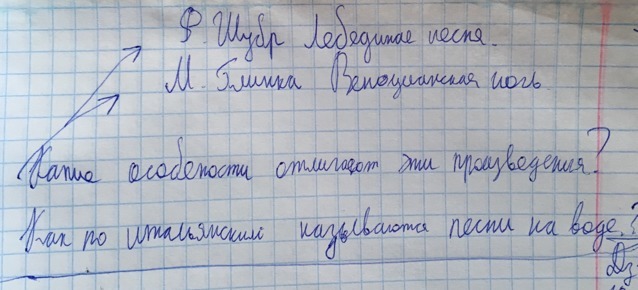 Ф. Шубр Лебединае песня.
М. Глинка Венецианская ночь
Какие особености отличают эти произведения?
Как по итальянским называются песни на воде.?
Дз